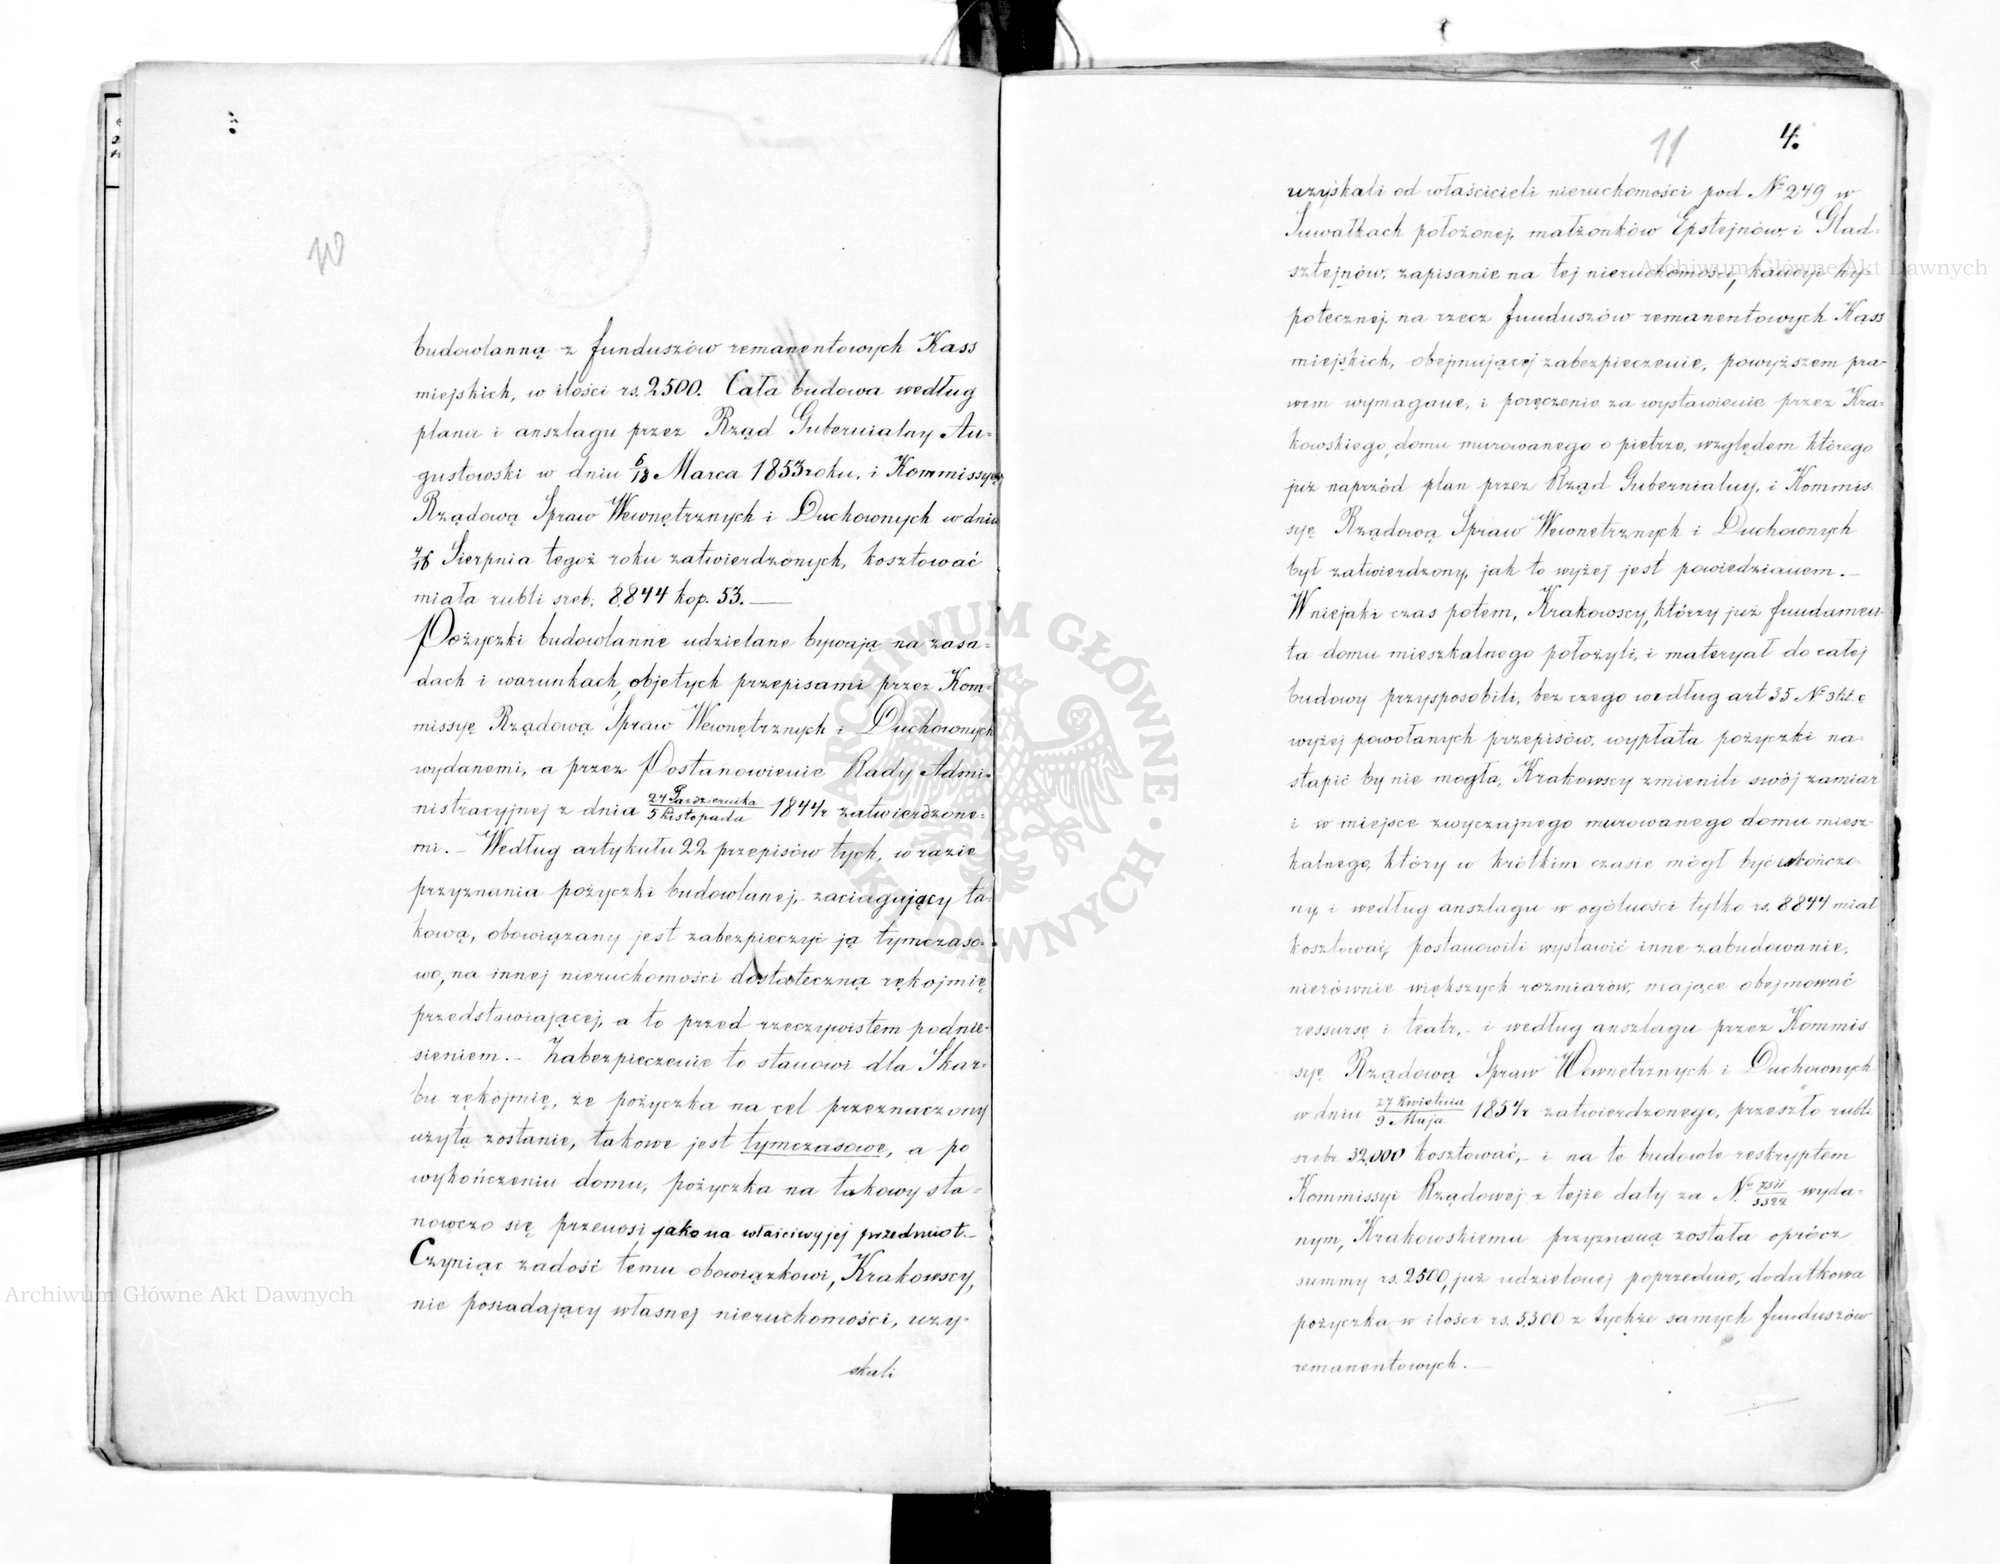 budowlanną z funduszów remanentowych Kass
miejskich, w ilości rs. 2500. Cała budowa według
planu i anszlagu przez Rząd Gubernialny Au-
gustowski w dniu 6/18 Marca 1853 roku, i Kommissyę
Rządową Spraw Wewnętrznych i Duchownych w dniu
4/16 Sierpnia tegoż roku zatwierdzonych, kosztować
miała rubli sreb. 8,844 kop. 53.—
Pożyczki budowlanne udzielane bywają na zasa-
dach i warunkach, objętych przepisami przez Kom-
missyę Rządową Spraw Wewnętrznych i Duchownych
wydanemi, a przez Postanowienie Rady Admi-
nistracyjnej z dnia 24 Października/5 Listopada 1844 r zatwierdzone-
mi.— Według artykułu 22 przepisów tych, w razie
przyznania pożyczki budowlanej, zaciągający ta-
kową, obowiązany jest zabezpieczyć ją tymczaso-
wo, na innej nieruchomości dostateczną rękojmię
przedstawiającej, a to przed rzeczywistem podnie-
sieniem.— Zabezpieczenie to stanowi dla Skar-
bu rękojmię, że pożyczka na cel przeznaczony
użytą zostanie, takowe jest tymczasowe, a po
wykończeniu domu, pożyczka na takowy sta-
nowczo się przenosi jako na właściwy jej przedmiot.—
Czyniąc zadość temu obowiązkowi, Krakowscy,
nie posiadający własnej nieruchomości, uzy-
skali
11 4.
uzyskali od właścicieli nieruchomości pod № 249 w
Suwałkach położonej, małżonków Epstejnów i Glad-
sztejnów, zapisanie na tej nieruchomości, kaucyi hy-
potecznej, na rzecz funduszów remanentowych Kass
miejskich, obejmującej zabezpieczenie, powyższem pra-
wem wymagane, i poręczenie za wystawienie przez Kra-
kowskiego, domu murowanego o piętrze, względem którego
już naprzód plan przez Rząd Gubernialny, i Kommis-
syę Rządową Spraw Wewnętrznych i Duchownych
był zatwierdzony, jak to wyżej jest powiedzianem.—
W niejaki czas potem, Krakowscy, którzy już fundamen-
ta domu mieszkalnego położyli, i materyał do całej
budowy przysposobili, bez czego według art 35 № 3 lit. c
wyżej powołanych przepisów, wypłata pożyczki na-
stąpić by nie mogła, Krakowscy zmienili swój zamiar
i w miejsce zwyczajnego murowanego domu miesz-
kalnego, który w krótkim czasie mógł być ukończo-
ny, i według anszlagu w ogólności tylko rs. 8844 miał
kosztować, postanowili wystawić inne zabudowanie,
nierównie większych rozmiarów, mające obejmować
ressursę i teatr,— i według anszlagu przez Kommis-
syę Rządową Spraw Wewnętrznych i Duchownych
w dniu 27 Kwietnia/9 Maja 1854 r zatwierdzonego, przeszło rubli
srebr. 32,000 kosztować,— i na te budowle reskryptem
Kommissyi Rządowej z tejże daty za № wyda-
nym, Krakowskiemu przyznaną została oprócz
summy rs. 2500, już udzielonej poprzednio, dodatkowa
pożyczka w ilości rs. 5,500 z tychże samych funduszów
remanentowych.—
Archiwum Główne Akt Dawnych
Archiwum Główne Akt Dawnych
ARCHIWUM GŁÓWNE AKT DAWNYCH